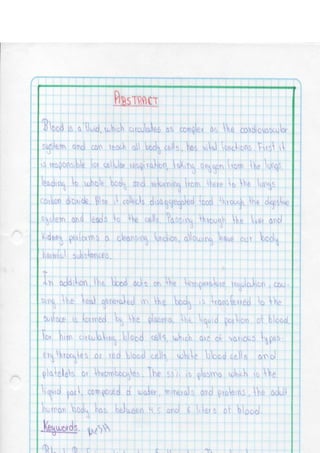 ABSTRACT
Blood is a fluid, which circulates as complex as the cardiovascular
system and can reach all body cells, has vital functions. First it
is responsible for cellular respiration, taking oxygen from the lungs
leading to whole body and returning from there to the lungs
carbon dioxide. Also it collects disaggregated food through the digestive
system and leads to the cells. Passing through the liver and
Kidney performs a cleansing function, allowing have out body
harmful substances.
In addition, the blood acts on the temperature regulation, cau-
sing the heat generated in the body is transferred to the
surface is formed by the plasma, the liquid portion of blood.
For him circulating blood cells, which are of various types:
erythrocytes or red blood cells, white blood cells and
platelets or thrombocytes. The 55% is plasma, which is the
liquid part, composed of water, minerals and proteins, the adult
human body has between 4.5 and 6 liters of blood.
Keywords: